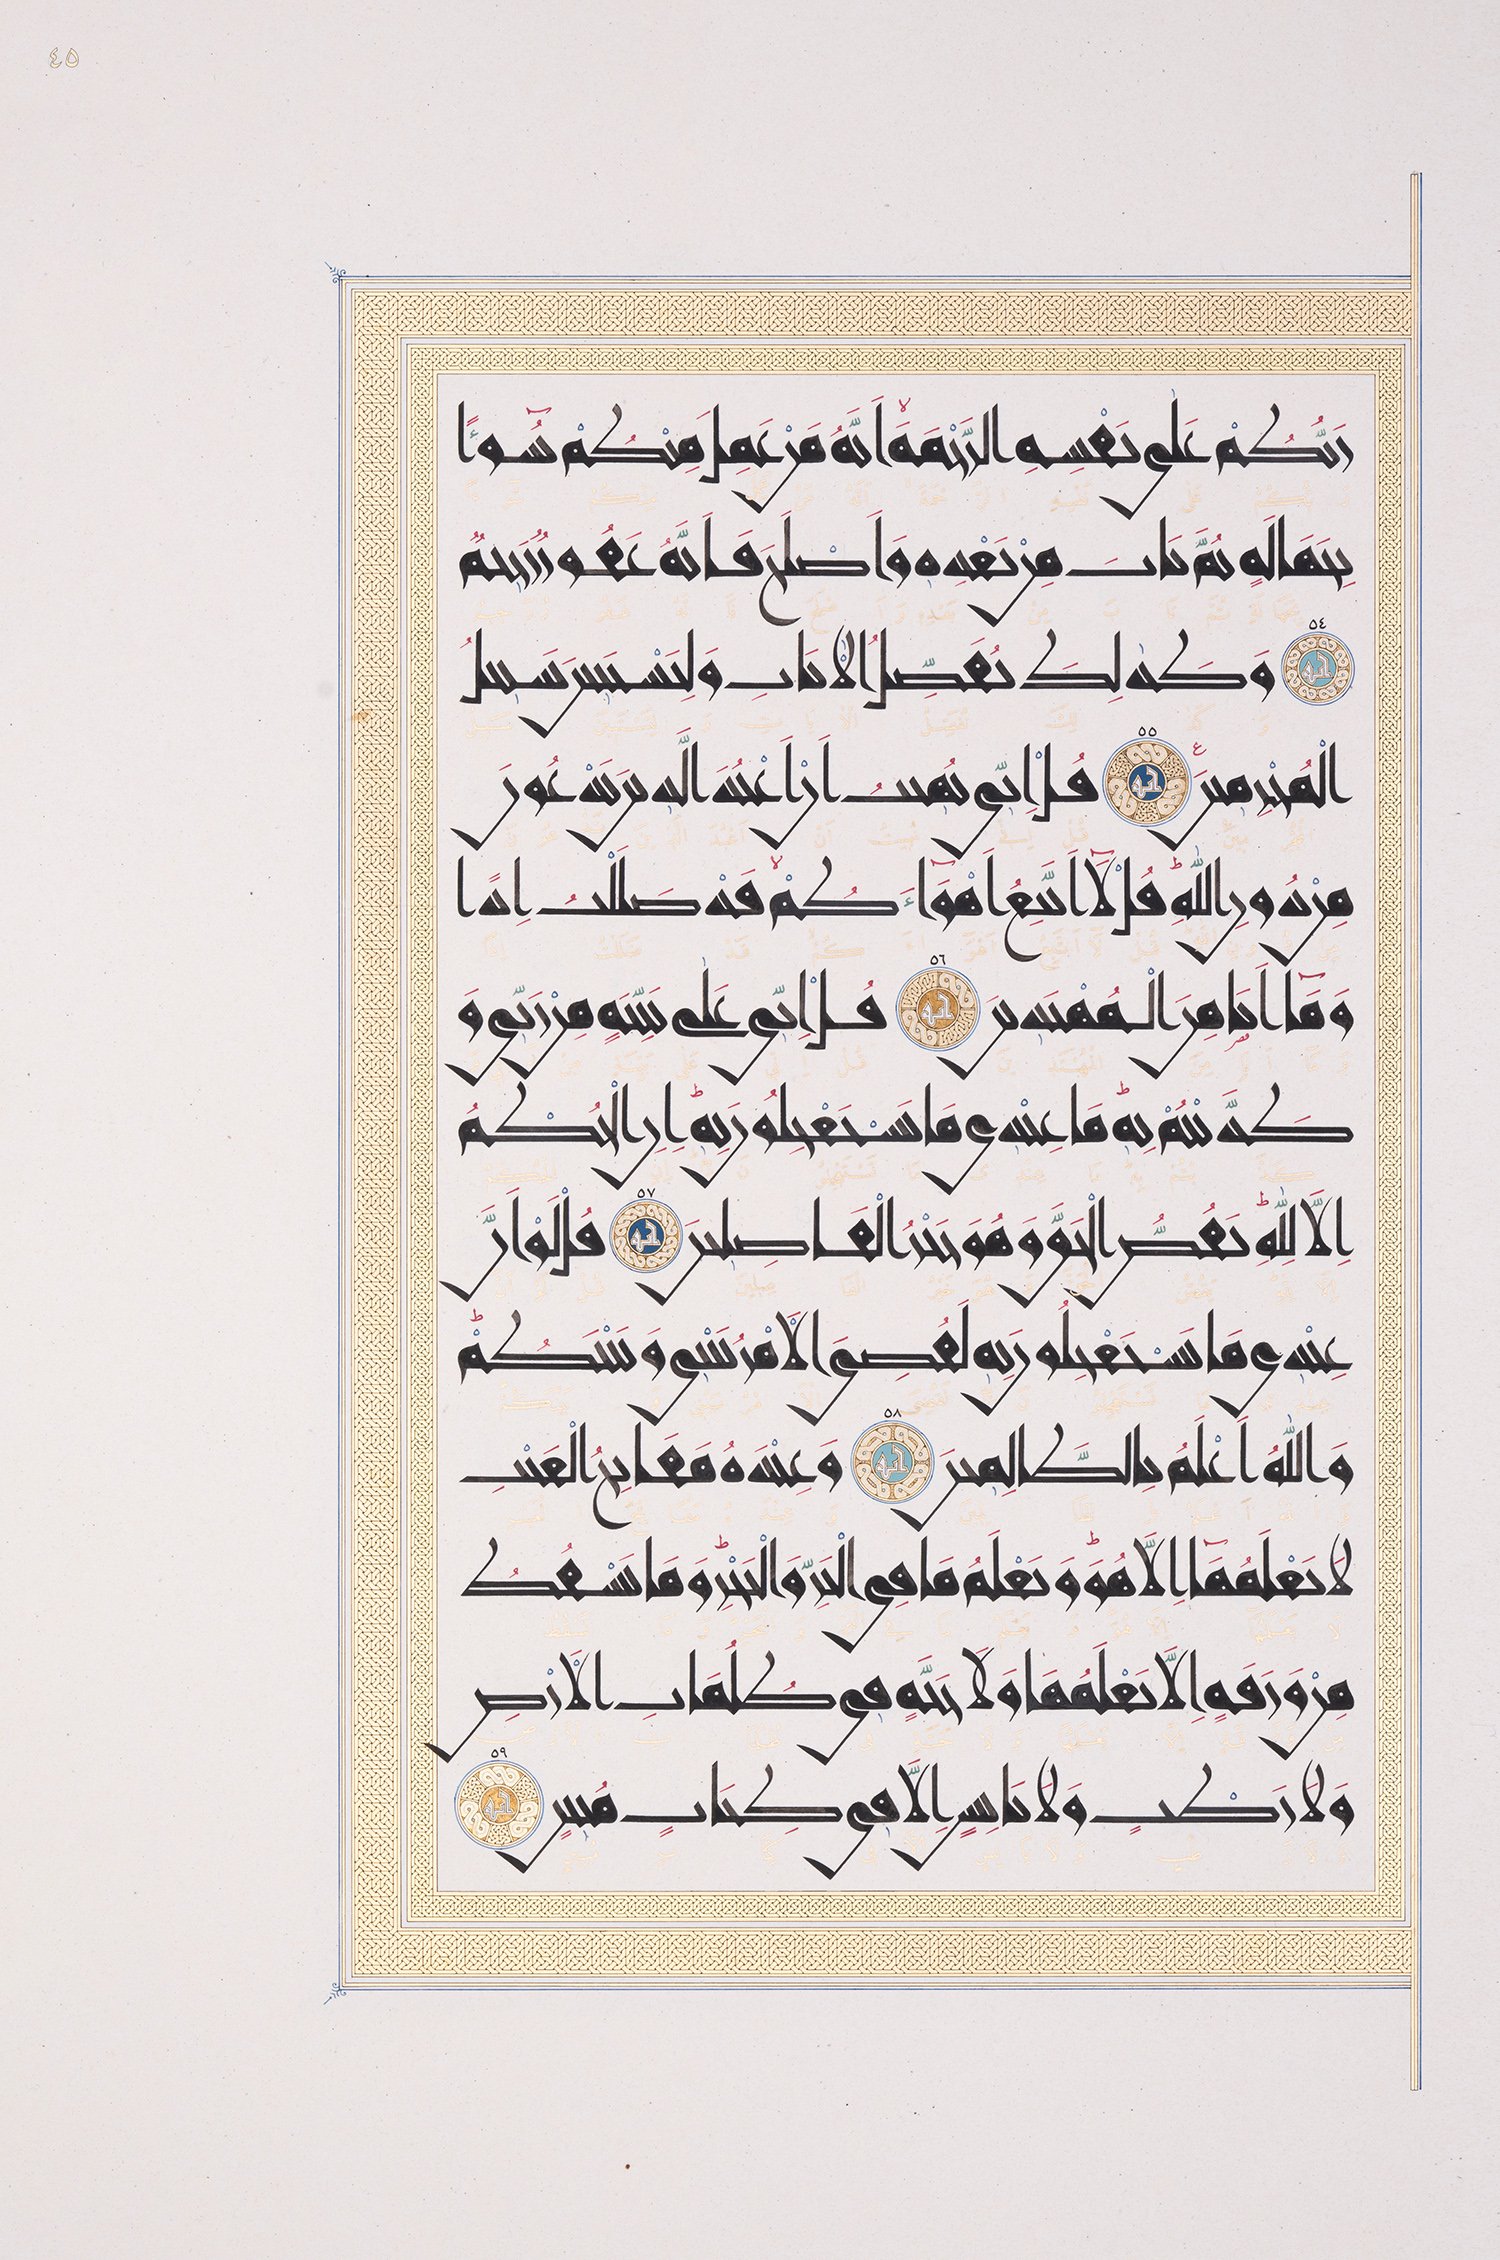 ٤٥
رَبُّكُمْ عَلَىٰ نَفْسِهِ الرَّحْمَةَ أَنَّهُ مَنْ عَمِلَ مِنكُمْ سُوءًا
بِجَهَالَةٍ ثُمَّ تَابَ مِنْ بَعْدِهِ وَأَصْلَحَ فَأَنَّهُ غَفُورٌ رَحِيمٌ
٥٤ وَكَذَٰلِكَ نُفَصِّلُ الْآيَاتِ وَلِتَسْتَبِينَ سَبِيلُ
الْمُجْرِمِينَ ٥٥ قُلْ إِنِّي نُهِيتُ أَنْ أَعْبُدَ الَّذِينَ تَدْعُونَ
مِنْ دُونِ اللَّهِ قُلْ لَا أَتَّبِعُ أَهْوَاءَكُمْ قَدْ ضَلَلْتُ إِذًا
وَمَا أَنَا مِنَ الْمُهْتَدِينَ ٥٦ قُلْ إِنِّي عَلَىٰ بَيِّنَةٍ مِنْ رَبِّي وَ
كَذَّبْتُمْ بِهِ مَا عِنْدِي مَا تَسْتَعْجِلُونَ بِهِ إِنِ الْحُكْمُ
إِلَّا لِلَّهِ يَقُصُّ الْحَقَّ وَهُوَ خَيْرُ الْفَاصِلِينَ ٥٧ قُلْ لَوْ أَنَّ
عِنْدِي مَا تَسْتَعْجِلُونَ بِهِ لَقُضِيَ الْأَمْرُ بَيْنِي وَبَيْنَكُمْ
وَاللَّهُ أَعْلَمُ بِالظَّالِمِينَ ٥٨ وَعِنْدَهُ مَفَاتِحُ الْغَيْبِ
لَا يَعْلَمُهَا إِلَّا هُوَ وَيَعْلَمُ مَا فِي الْبَرِّ وَالْبَحْرِ وَمَا تَسْقُطُ
مِنْ وَرَقَةٍ إِلَّا يَعْلَمُهَا وَلَا حَبَّةٍ فِي ظُلُمَاتِ الْأَرْضِ
وَلَا رَطْبٍ وَلَا يَابِسٍ إِلَّا فِي كِتَابٍ مُبِينٍ ٥٩